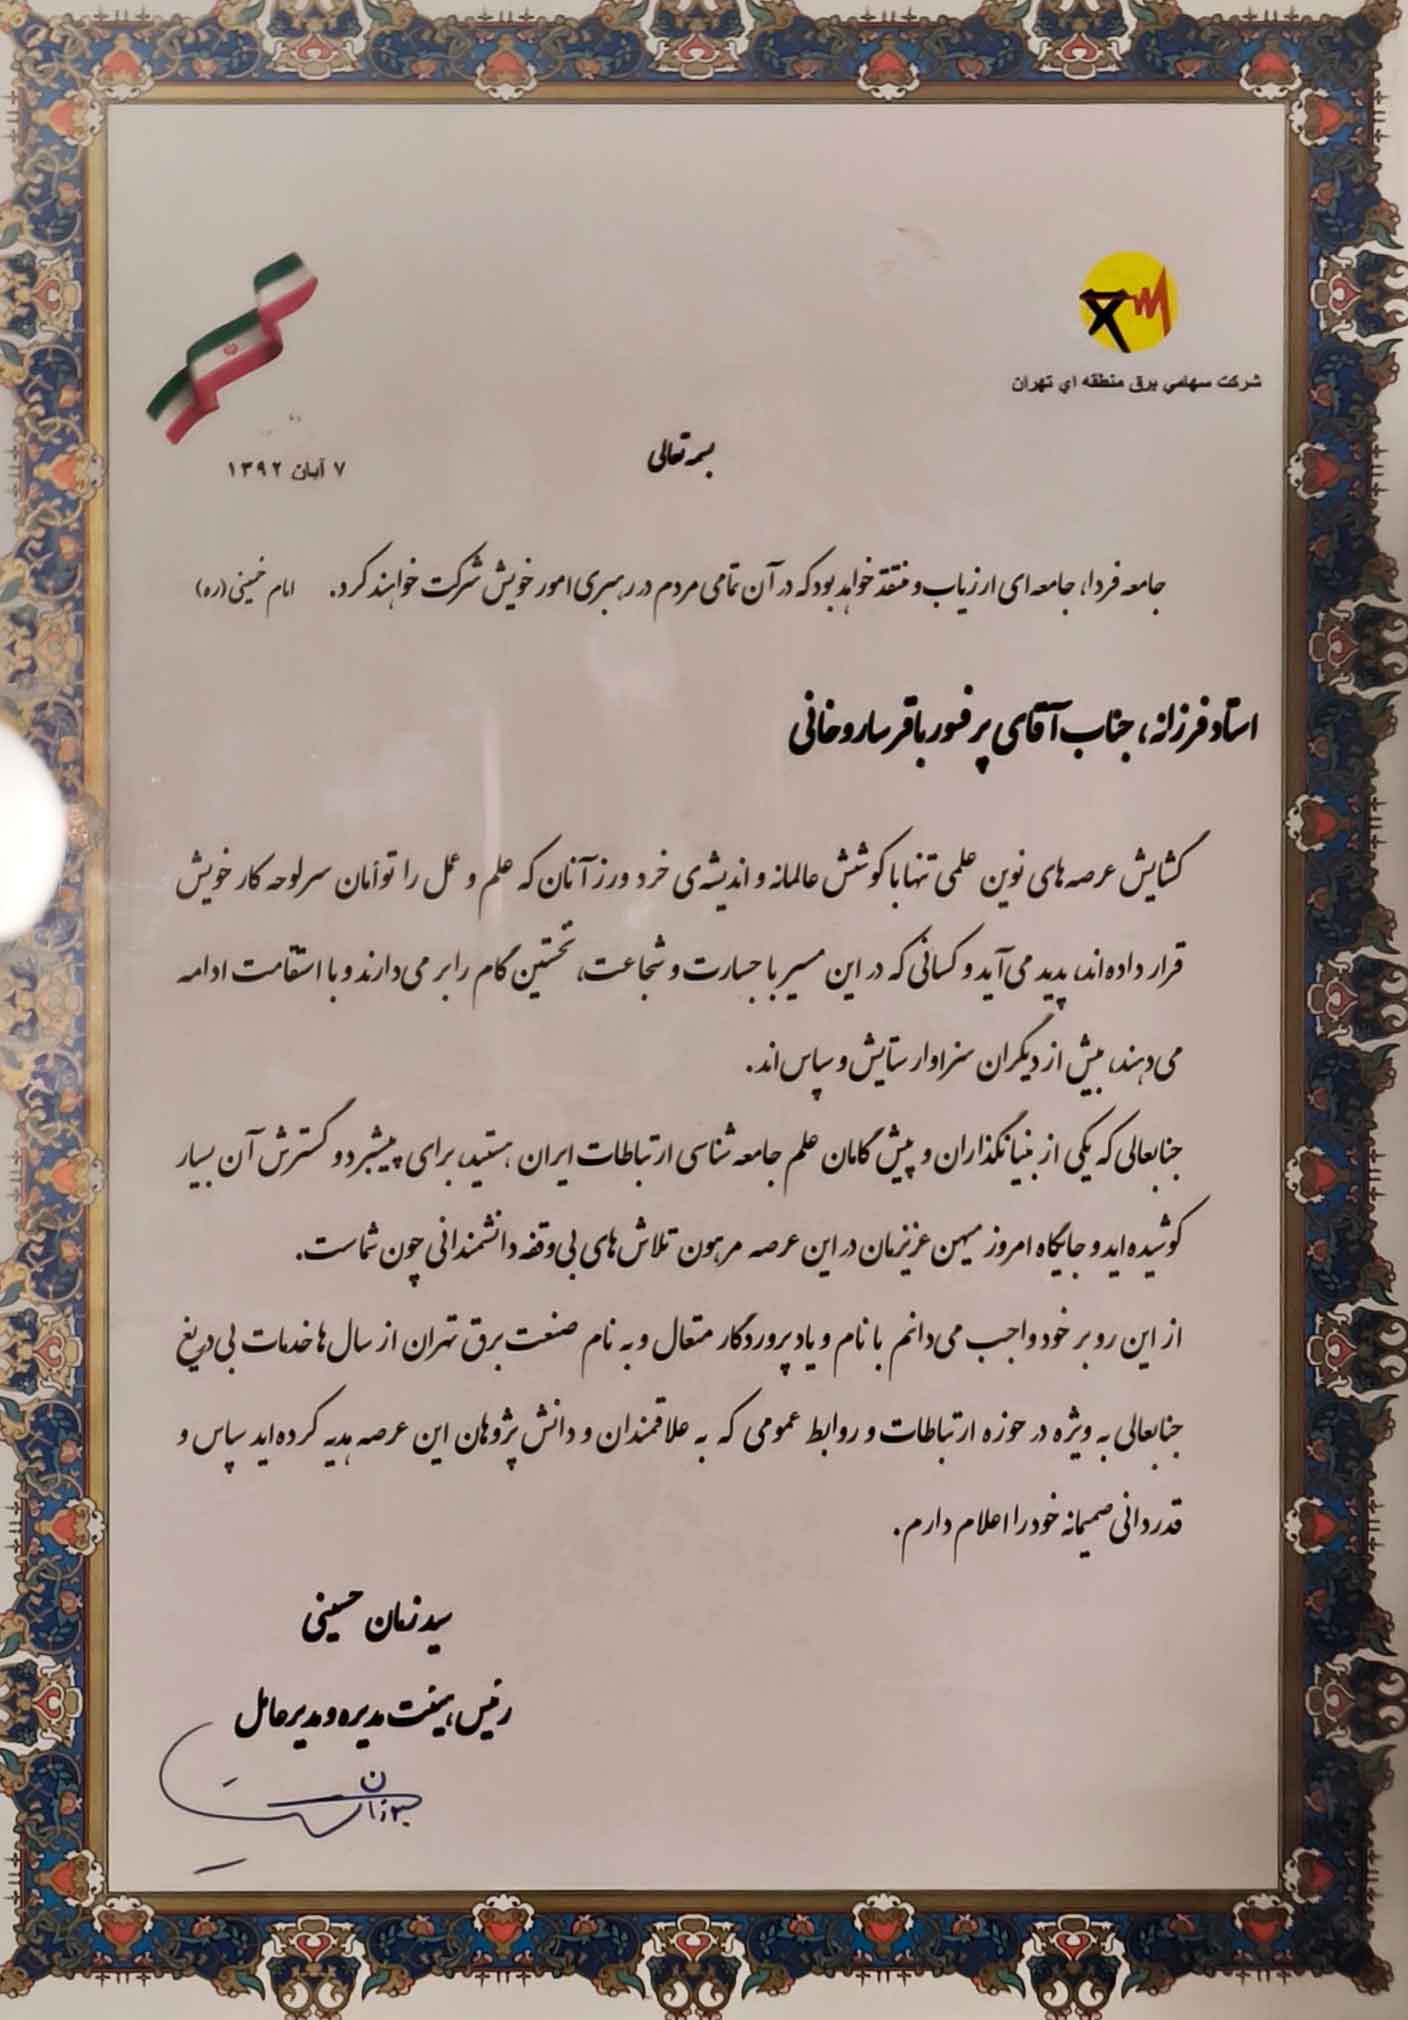 شرکت سهامی برق منطقه ای تهران
۷ آبان ۱۳۹۲
بسمه تعالی
جامعه فردا، جامعه ای ارزیاب و منتقد خواهد بود که در آن تمامی مردم در رهبری امور خویش شرکت خواهند کرد. امام خمینی (ره)
استاد فرزانه، جناب آقای پرفسور باقر ساروخانی
گشایش عرصه های نوین علمی تنها با کوشش عالمانه و اندیشه‌ی خرد ورز آنان که علم و عمل را توأمان سرلوحه کار خویش
قرار داده اند، پدید می آید و کسانی که در این مسیر با جسارت و شجاعت، نخستین گام را بر می دارند و با استقامت ادامه
می دهند، بیش از دیگران سزاوار ستایش و سپاس اند.
جنابعالی که یکی از بنیانگذاران و پیش گامان علم جامعه شناسی ارتباطات ایران هستید، برای پیشبرد و گسترش آن بسیار
کوشیده اید و جایگاه امروز میهن عزیزمان در این عرصه مرهون تلاش های بی وقفه دانشمندانی چون شماست.
از این رو بر خود واجب می دانم با نام و یاد پروردگار متعال و به نام صنعت برق تهران از سال ها خدمات بی دریغ
جنابعالی به ویژه در حوزه ارتباطات و روابط عمومی که به علاقمندان و دانش پژوهان این عرصه هدیه کرده اید سپاس و
قدردانی صمیمانه خود را اعلام دارم.
سید زمان حسینی
رئیس هیئت مدیره و مدیرعامل